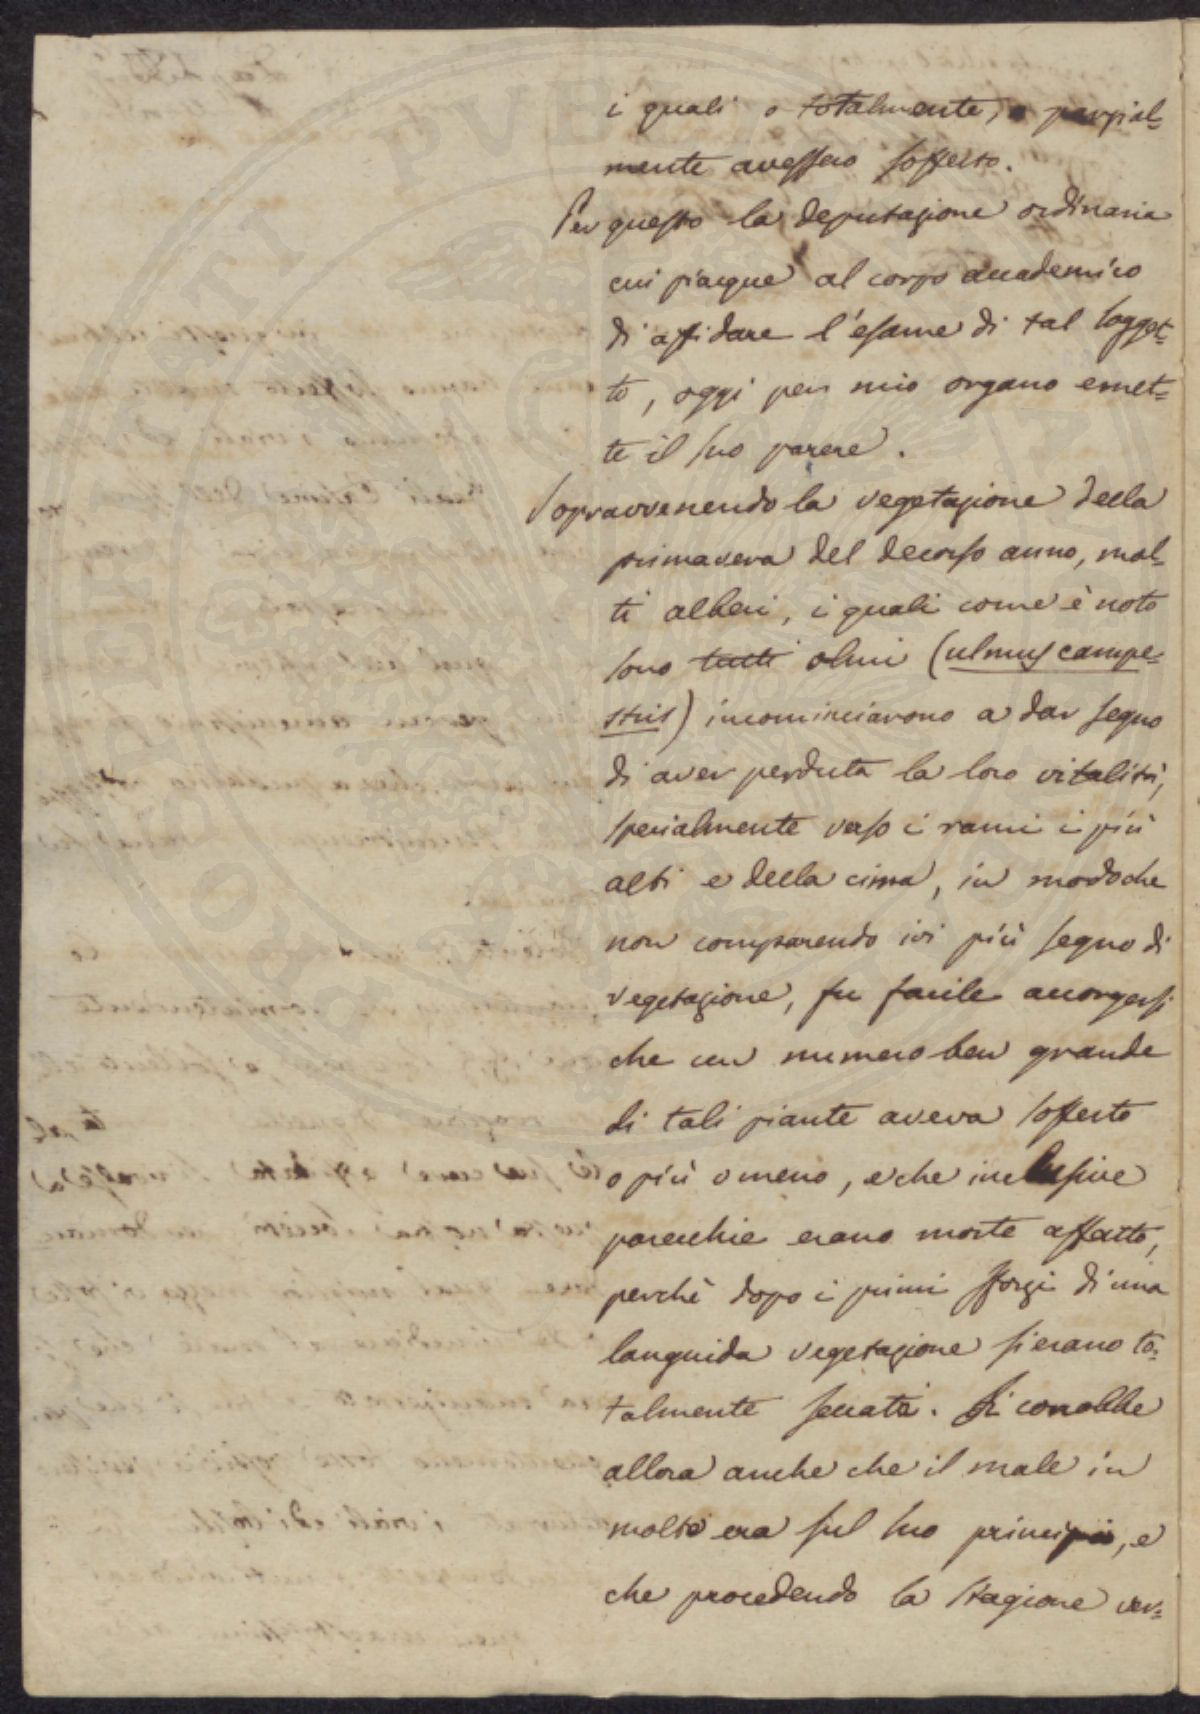 i quali o totalmente, o parzial=
mente avessero sofferto.
Per questo la deputazione ordinaria
cui piacque al corpo accademico
di affidare l'esame di tal sogget=
to, oggi per mio organo emet=
te il suo parere.
Sopravvenendo la vegetazione della
primavera del decorso anno, mol=
ti alberi, i quali come è noto
sono tutti olmi (ulmus campe=
stris) incominciarono a dar segno
di aver perduta la loro vitalità,
specialmente verso i rami i più
alti e della cima, in modo che
non comparendo ivi più segno di
vegetazione, fu facile accorgersi
che un numero ben grande
di tali piante aveva sofferto
o più o meno, e che inclusive
parecchie erano morte affatto,
perchè dopo i primi sforzi di una
languida vegetazione si erano to=
talmente seccate. Si conobbe
allora anche che il male in
molte era sul suo principio, e
che procedendo la stagione ver=